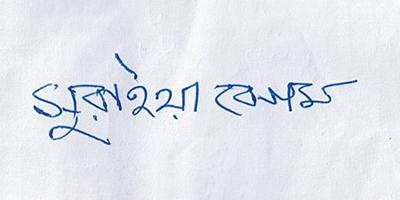 সুরাইয়া বেগম